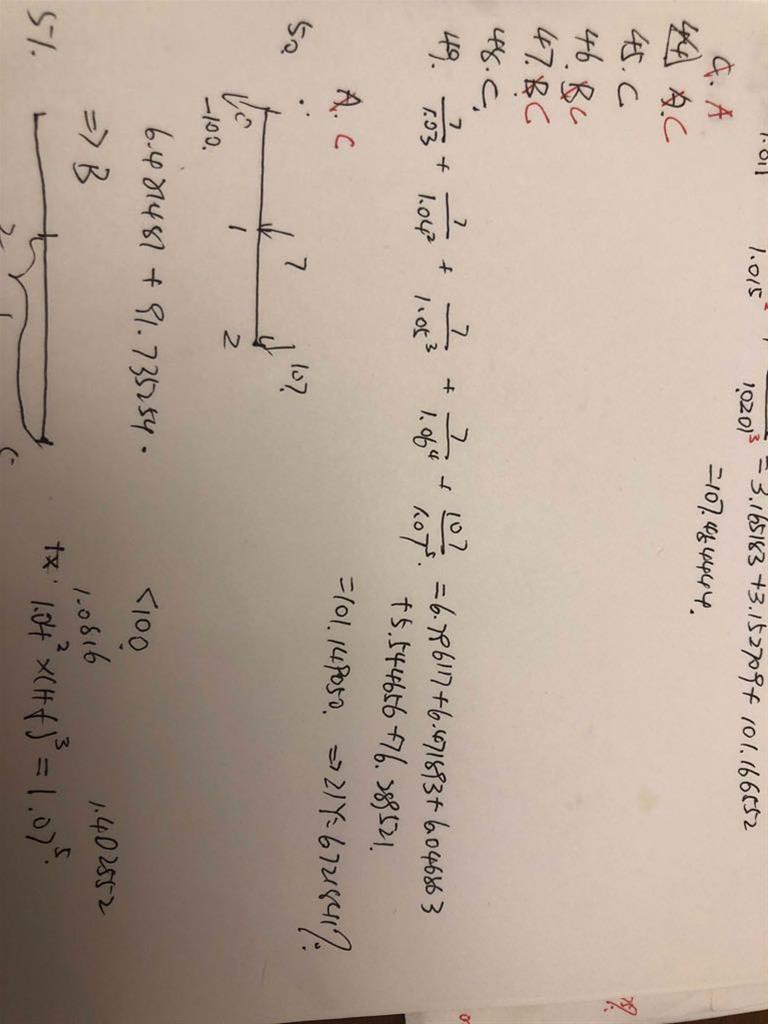 1.011
1.015²
1.0201³
= 3.165183 + 3.152709 + 101.166552
= 107.4844444.
A
44 A. C
45. C
46. B C
47. B C
48. C.
49. 7/1.03 + 7/1.04² + 7/1.05³ + 7/1.06⁴ + 107/1.07⁵. = 6.796117 + 6.471893 + 6.046863
+ 5.544656 + 76.289521.
= 101.149050. ⇒ 21Y = 6.721841%.
A. C
50 ∴
-100.
1
7
2
107
6.421487 + 91.735254. <100
⇒ B
51.
1.0816
1.402552
1.04² × (1+f)³ = 1.07⁵.